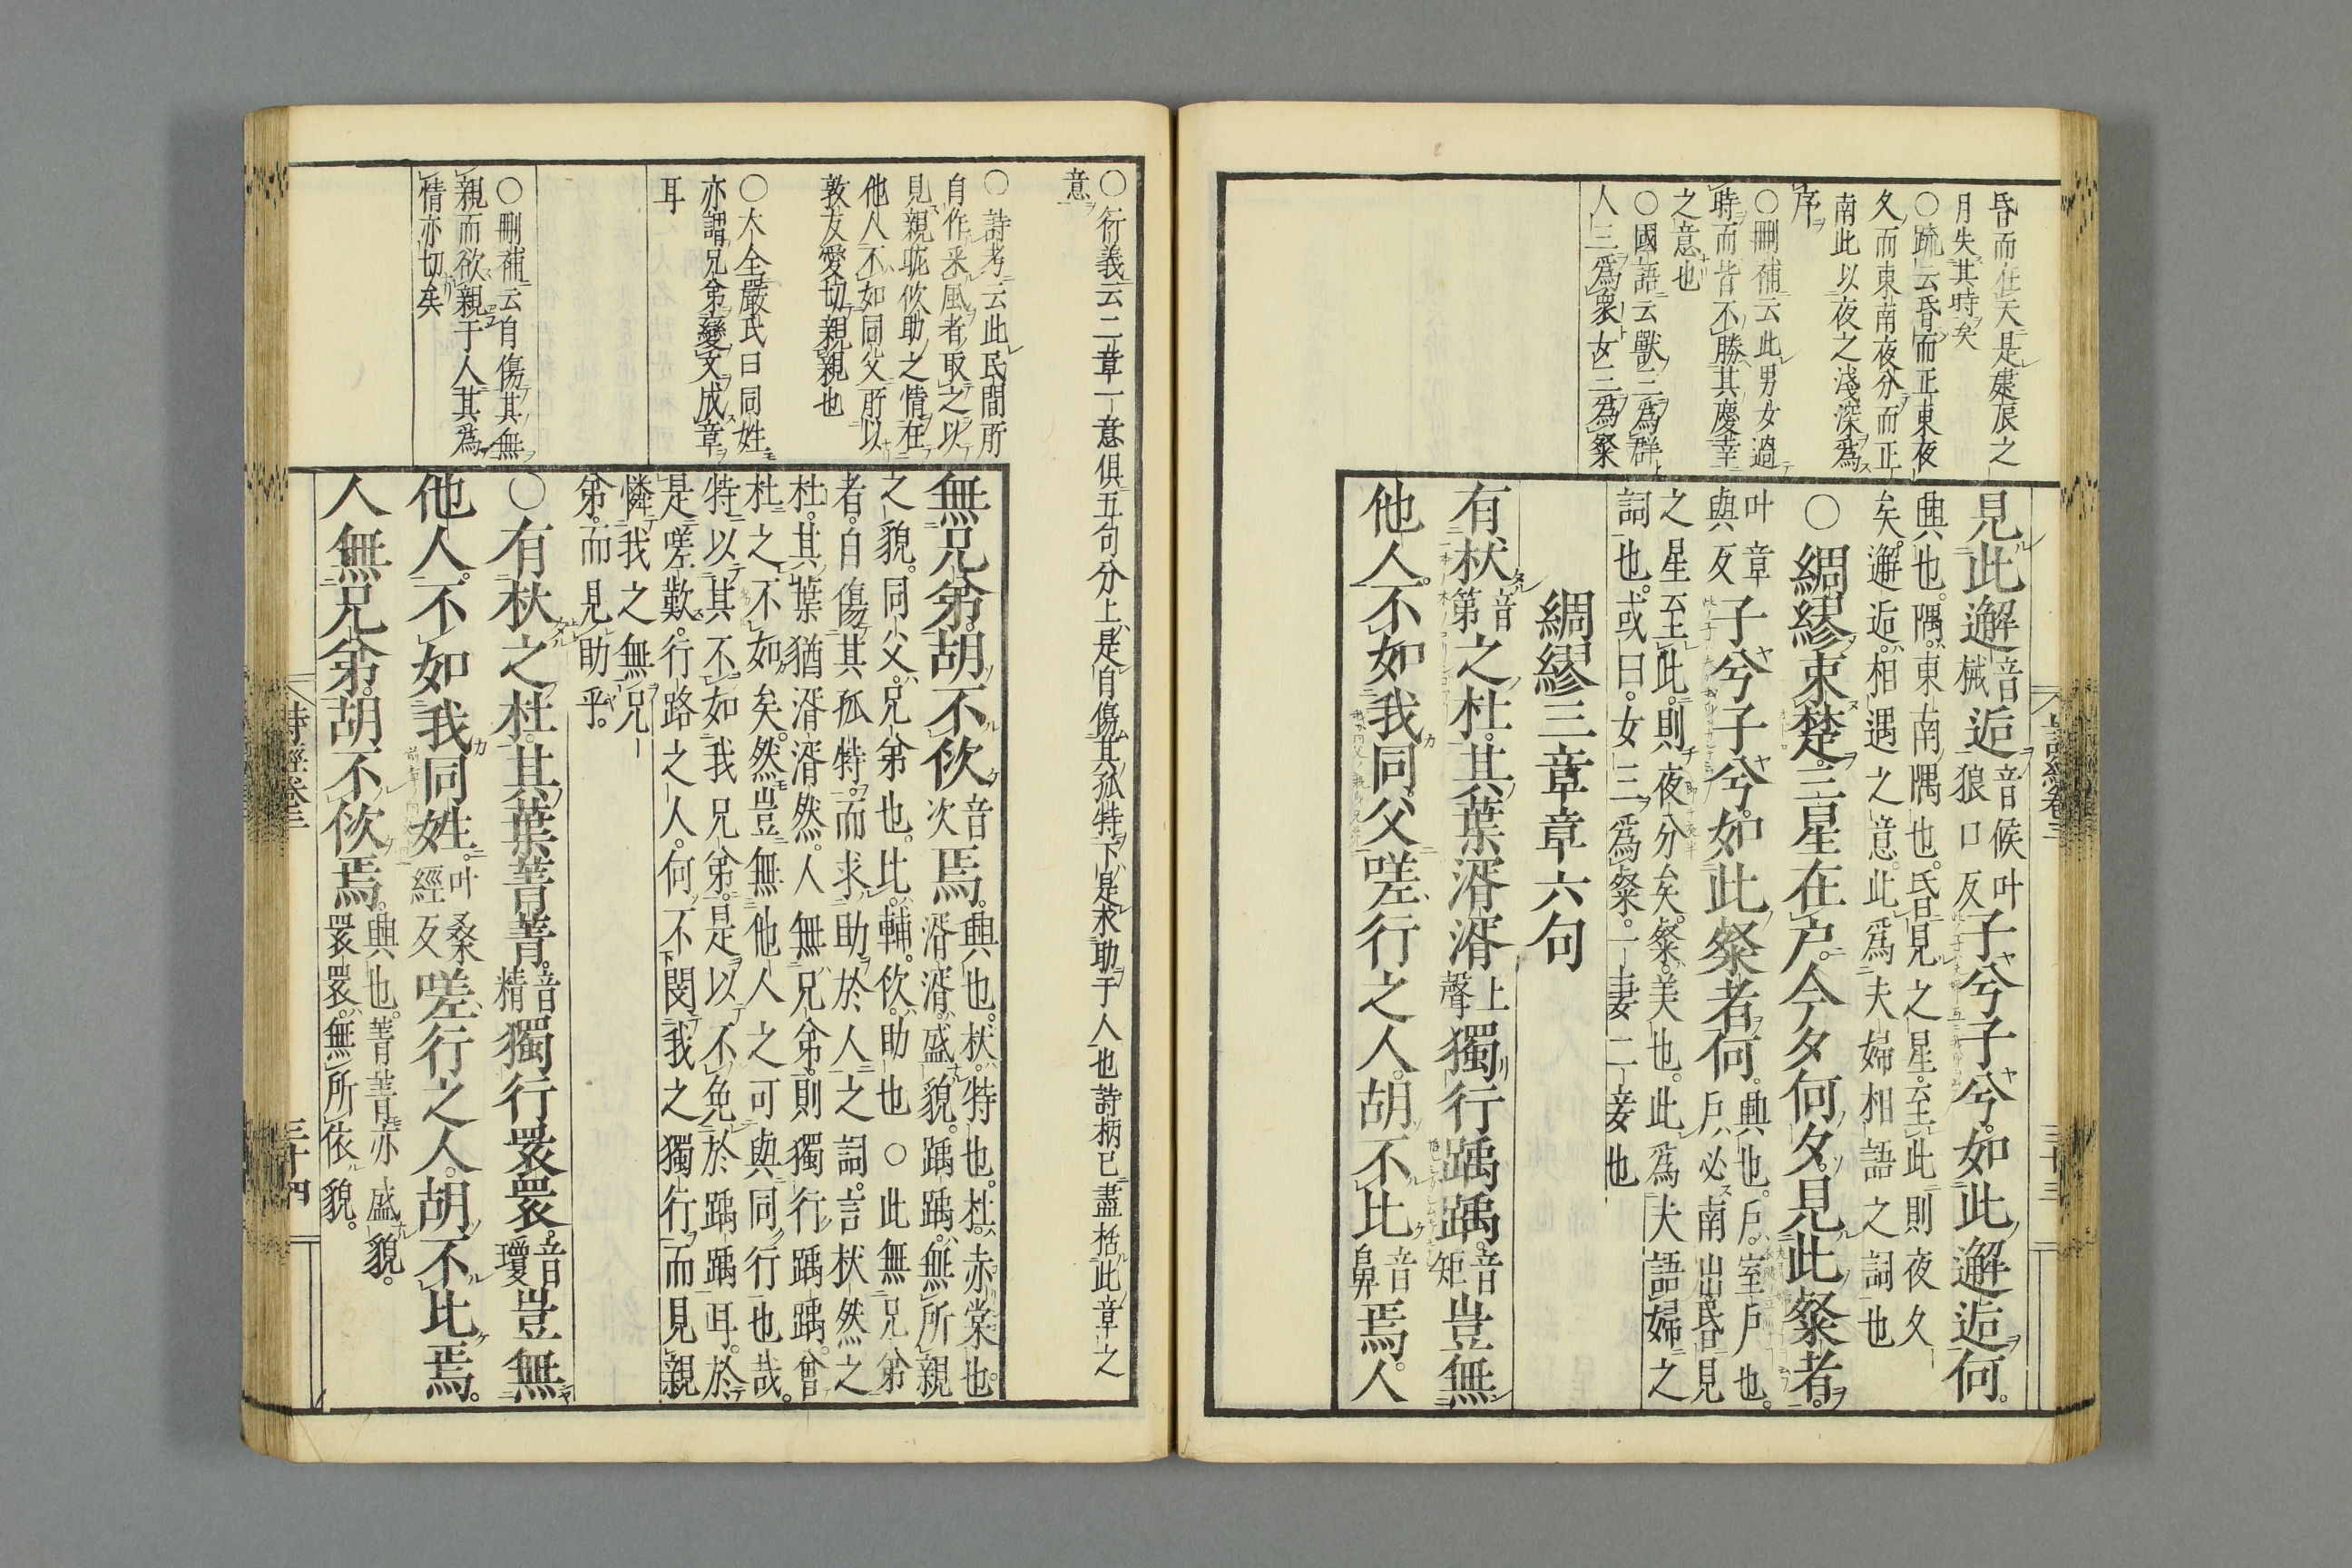 昏而在天是建辰之
月失其時矣
○疏云昏而正東夜
久而東南夜分而正
南此以夜之淺深爲
序
○刪補云此男女過
時而皆不勝其慶幸
之意也
○國語云獸三爲群
人三爲衆女三爲粲
見此邂音械逅音候叶狼口反子兮子兮如此邂逅何。
興也。隅。東南隅也。昏見之星至此則夜久
矣。邂逅。相遇之意。此爲夫婦相語之詞也
○綢繆束楚。三星在戶。今夕何夕。見此粲者。
叶章與反子兮子兮。如此粲者何。興也。戶。室戶也。戶必南出。昏見
之星至此。則夜分矣。粲。美也。此爲夫語婦之
詞也。或曰。女三爲粲。一妻二妾也
綢繆三章章六句
有杕音第之杜。其葉湑湑上聲獨行踽踽。音矩豈無
他人。不如我同父。嗟行之人。胡不比音鼻焉。人
詩經卷三
三十三
○衍義云二章一意俱五句分上是自傷其孤特下是求助于人也詩柄已盡括此章之
意
○詩考云此民間所
自作采風者取之以
見親昵佽助之情在
他人不如同父所以
敦友愛切親親也
○大全嚴氏曰同姓
亦謂兄弟變文成章
耳
○刪補云自傷其無
親而欲親于人其爲
情亦切矣
無兄弟。胡不佽音次焉。興也。杕。特也。杜。赤棠也。湑湑。盛貌。踽踽。無所親
之貌。同父。兄弟也。比。輔。佽。助也○此無兄弟
者。自傷其孤特。而求助於人之詞。言杕然之
杜。其葉猶湑湑然。人無兄弟。則獨行踽踽。曾
杜之不如矣。然豈無他人之可與同行也哉。
特以其不如我兄弟。是以不免於踽踽耳。於
是嗟歎。行路之人。何不閔我之獨行而見親
憐我之無兄
弟。而見助乎。
○有杕之杜。其葉菁菁。音精獨行睘睘。音瓊豈無
他人。不如我同姓。叶桑經反嗟行之人。胡不比焉。
人無兄弟。胡不佽焉。興也。菁菁亦盛貌。睘睘。無所依貌。
詩經卷三
三十四